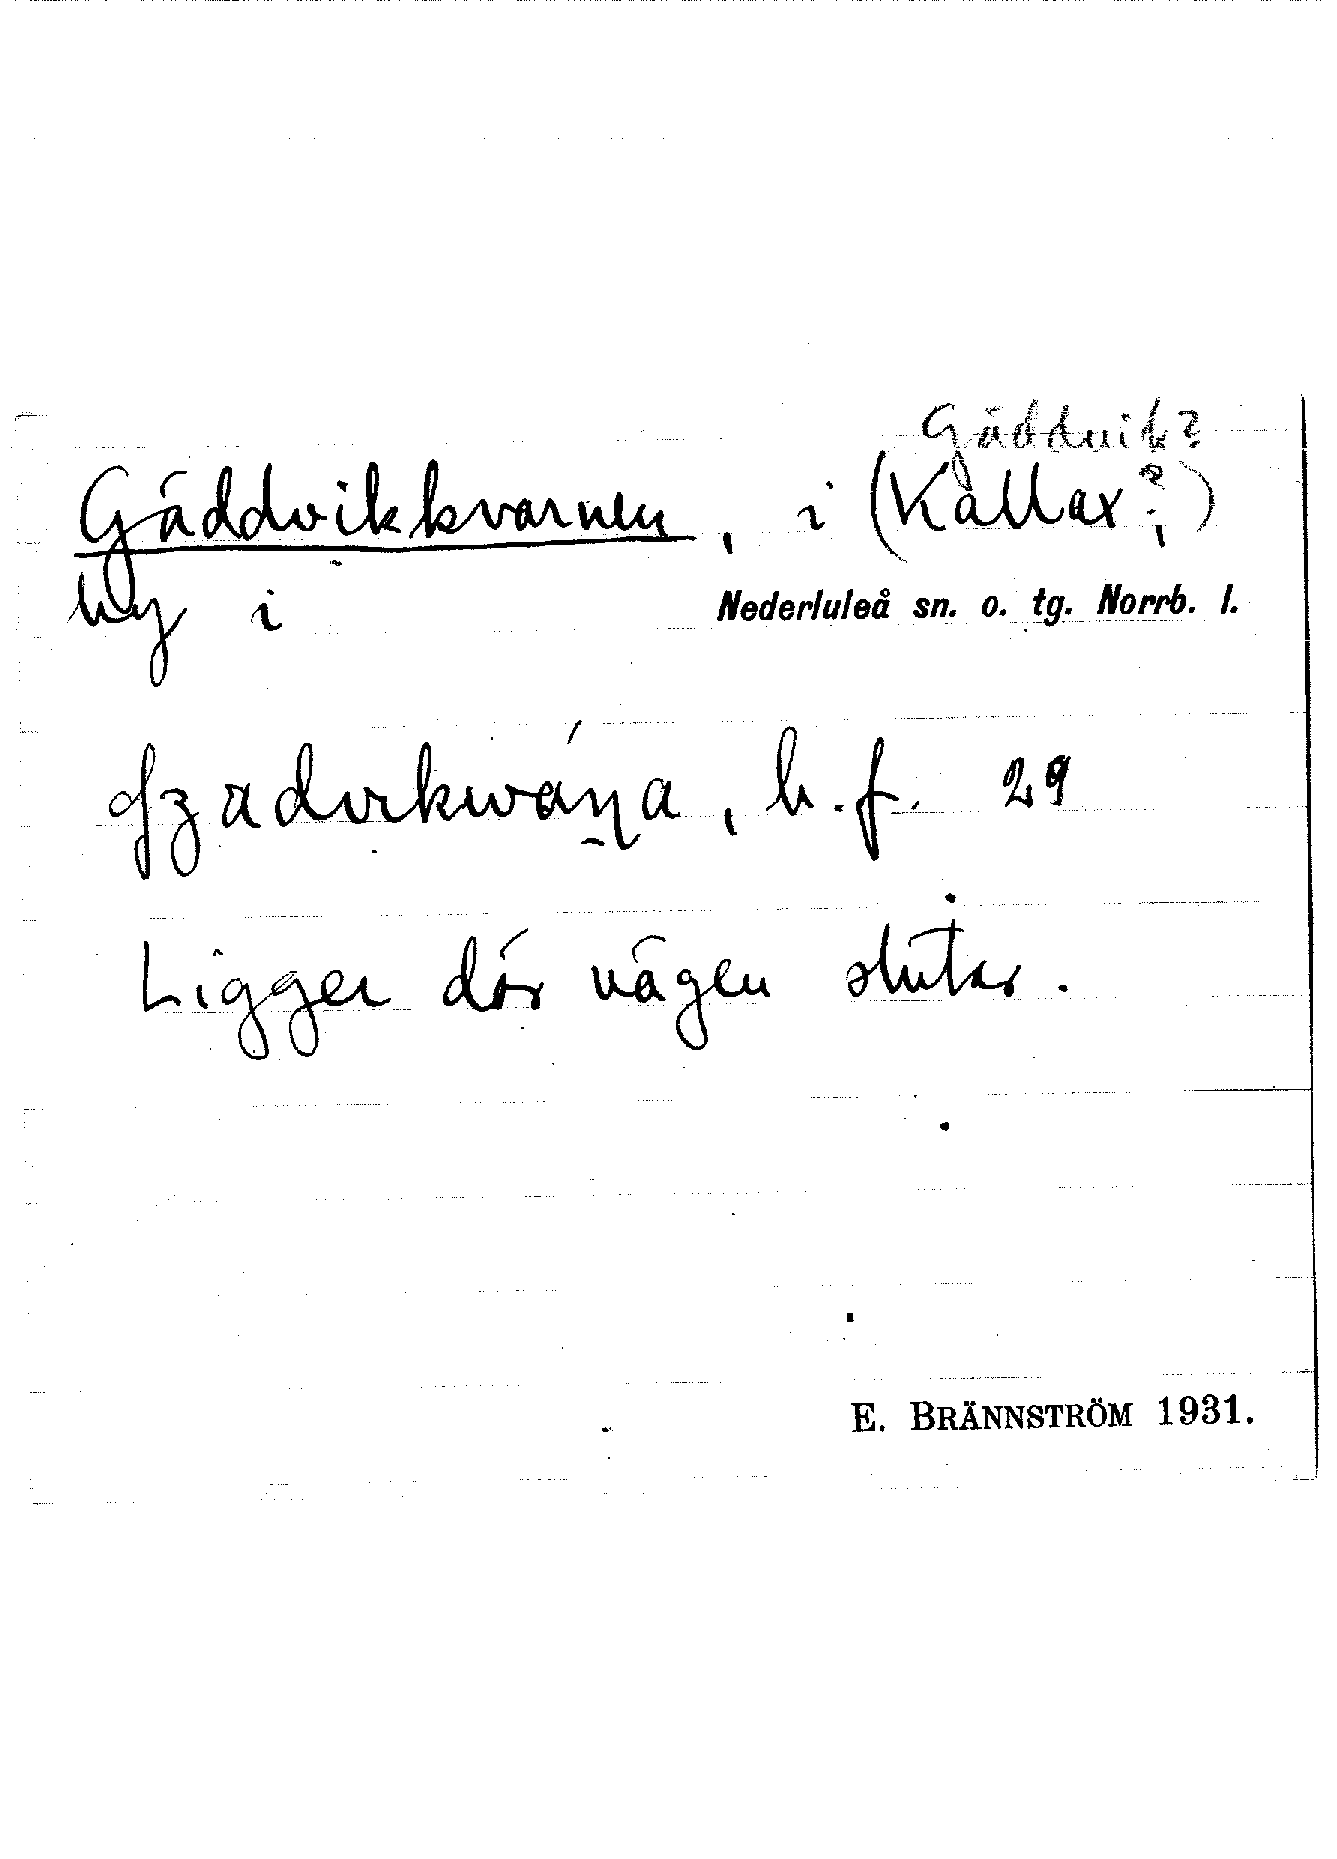 Gäddvik?
Gäddvikkvarnen, i (Kallax?)
by i Nederluleå sn. o. tg. Norrb. l.
b.f. 29
Ligger där vägen slutar.
E. BRÄNNSTRÖM 1931.